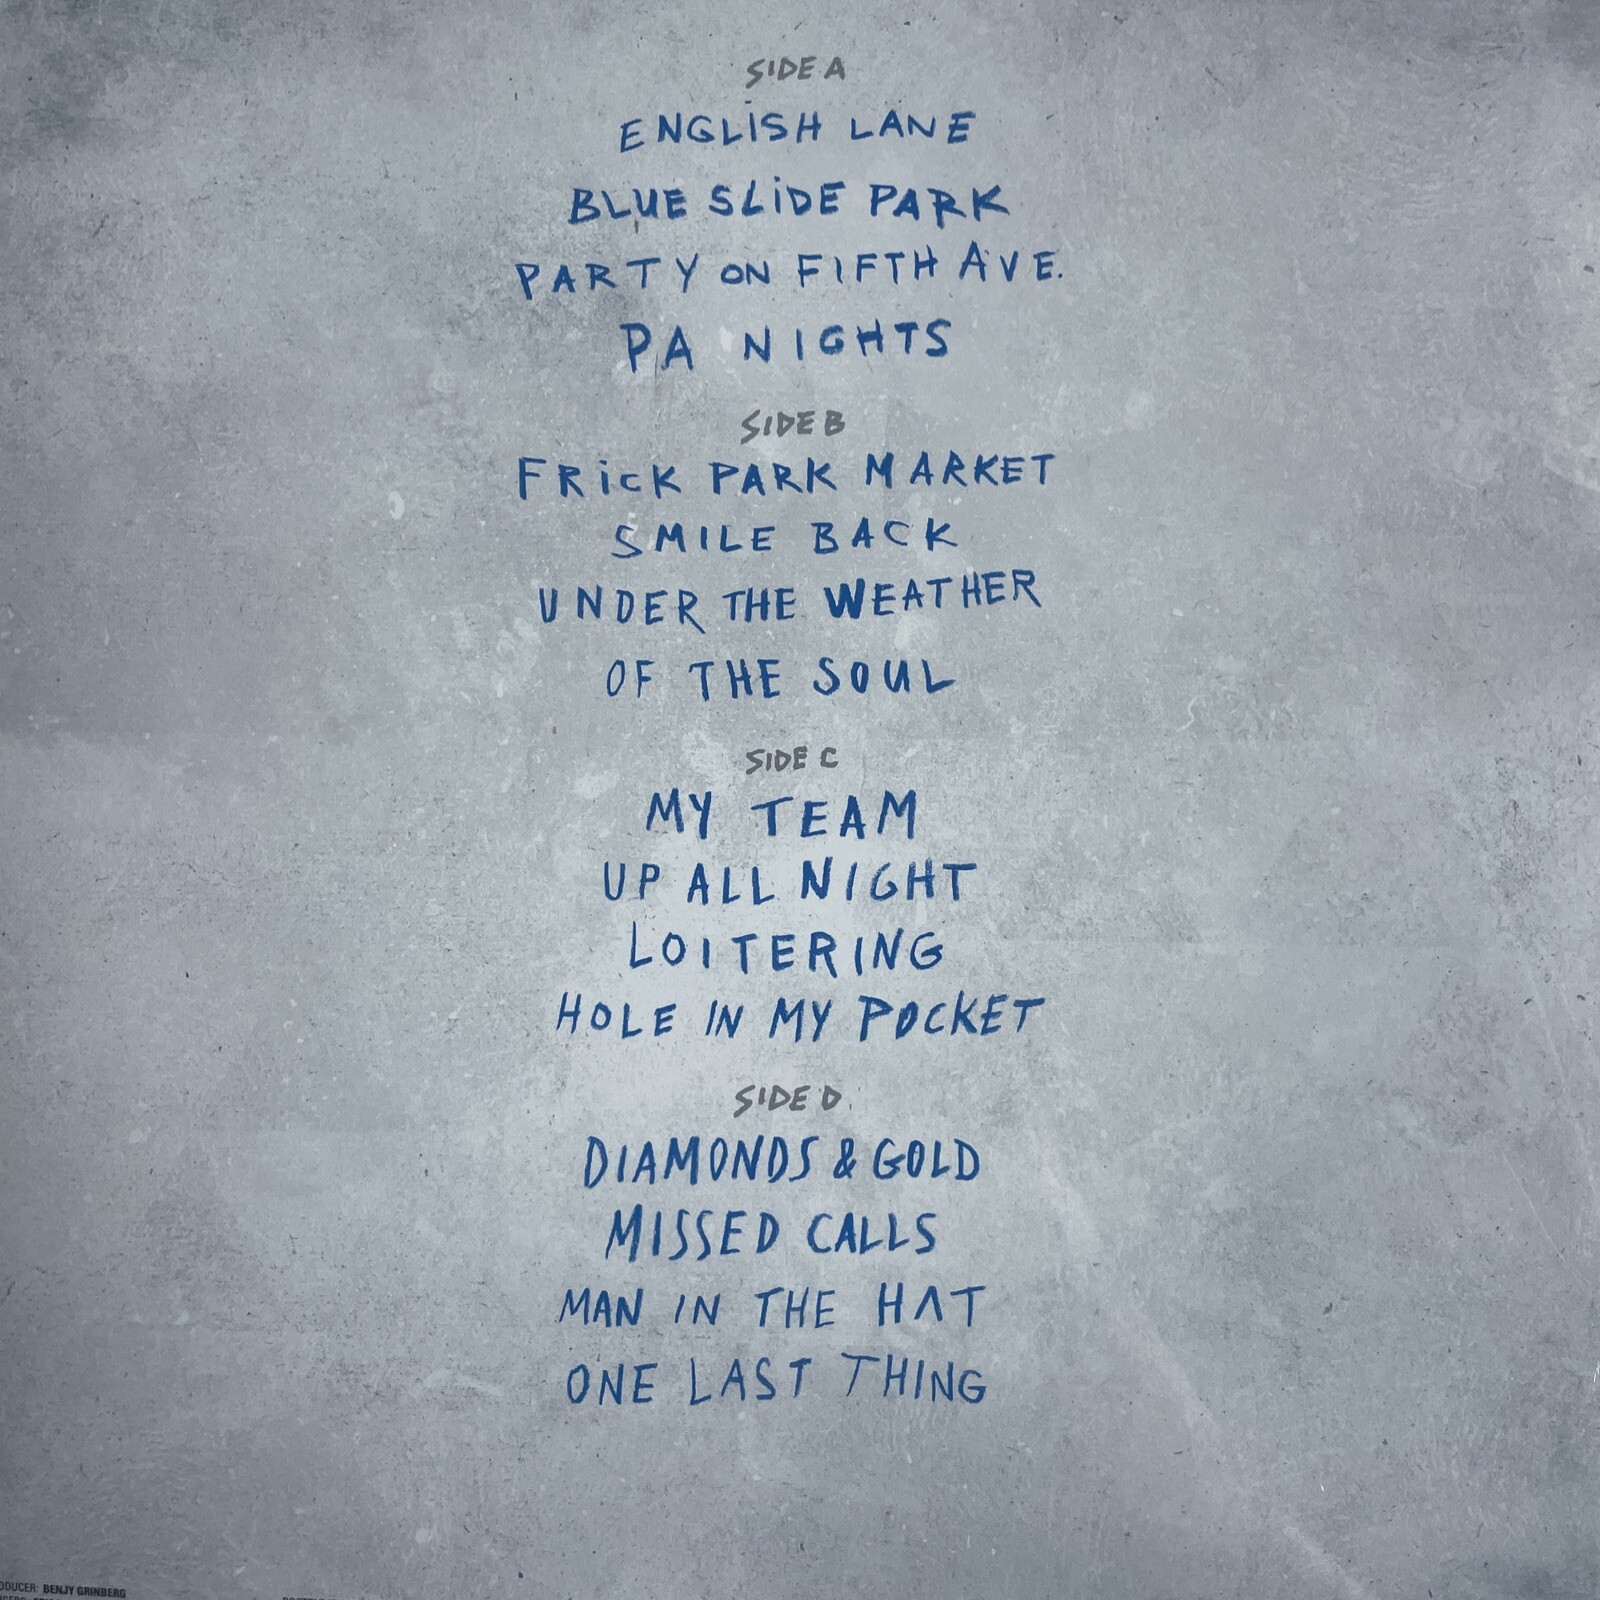 SIDE A
ENGLISH LANE
BLUE SLIDE PARK
PARTY ON FIFTH AVE.
PA NIGHTS
SIDE B
FRICK PARK MARKET
SMILE BACK
UNDER THE WEATHER
OF THE SOUL
SIDE C
MY TEAM
UP ALL NIGHT
LOITERING
HOLE IN MY POCKET
SIDE D
DIAMONDS & GOLD
MISSED CALLS
MAN IN THE HAT
ONE LAST THING
BENJY GRINBERG